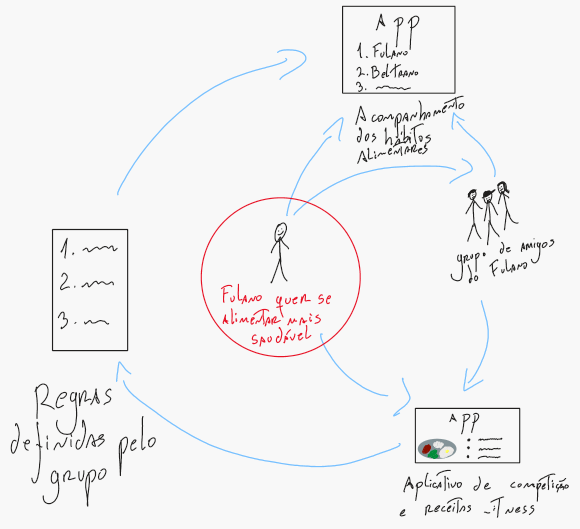 App
1. Fulano
2. Beltrano
3.
Acompanhamento
dos hábitos
Alimentares
grupo de amigos
do Fulano
Fulano quer se
alimentar mais
saudável
1.
2.
3.
Regras
definidas pelo
grupo
App
Aplicativo de competição
e receitas -itness